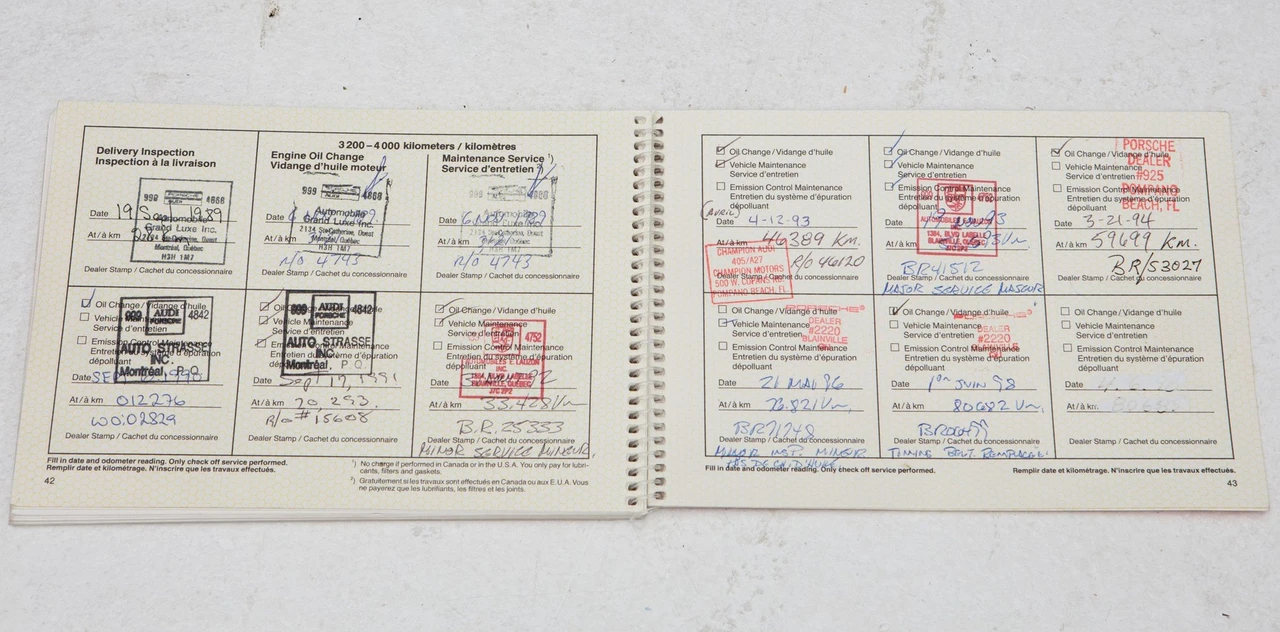 Delivery Inspection
Inspection à la livraison
Date
At / à km
999 4868
Automobile
Grand Luxe Inc.
Montréal, Québec
H3H 1M7
Dealer Stamp / Cachet du concessionnaire
3 200 – 4 000 kilometers / kilomètres
Engine Oil Change
Vidange d'huile moteur
999 4868
Automobile
Grand Luxe Inc.
2134 Ste-Catherine, Ouest
Montréal, Québec
H3H 1M7
Date
At / à km
R/O 4743
Dealer Stamp / Cachet du concessionnaire
Maintenance Service 1)
Service d'entretien
999 4868
Date
At / à km
R/O 4743
Dealer Stamp / Cachet du concessionnaire
Oil Change / Vidange d'huile
Vehicle Maintenance
Service d'entretien
Emission Control Maintenance
Entretien du système d'épuration
dépolluant
999 AUDI PORSCHE 4842
AUTO STRASSE
INC.
Montréal, P.Q.
Date
At / à km 012276
WO:02829
Dealer Stamp / Cachet du concessionnaire
Oil Change / Vidange d'huile
Vehicle Maintenance
Service d'entretien
Emission Control Maintenance
Entretien du système d'épuration
dépolluant
999 AUDI PORSCHE 4842
AUTO STRASSE
INC.
Montréal, P.Q.
Date Sep 17, 1991
At / à km 20,293
R/O # 15608
Dealer Stamp / Cachet du concessionnaire
Oil Change / Vidange d'huile
Vehicle Maintenance
Service d'entretien
Emission Control Maintenance
Entretien du système d'épuration
dépolluant
4752
AUTOMOBILES E. LAUZON
INC.
1384, BLVD LABELLE
BLAINVILLE, QUÉBEC
J7C 2P2
Date
At / à km 33.428 Km
B.R. 25333
Dealer Stamp / Cachet du concessionnaire
MINOR SERVICE MINEUR
Fill in date and odometer reading. Only check off service performed.
Remplir date et kilométrage. N'inscrire que les travaux effectués.
1) No charge if performed in Canada or in the U.S.A. You only pay for lubri-
cants, filters and gaskets.
2) Gratuitement si les travaux sont effectués en Canada ou aux E.U.A. Vous
ne payerez que les lubrifiants, les filtres et les joints.
42
Oil Change / Vidange d'huile
Vehicle Maintenance
Service d'entretien
Emission Control Maintenance
Entretien du système d'épuration
dépolluant
(Avril)
Date 4-12-93
At / à km 46389 Km.
R/O 46120
CHAMPION AUDI
405/A27
CHAMPION MOTORS
500 W. COPANS RD.
POMPANO BEACH, FL
Dealer Stamp / Cachet du concessionnaire
Oil Change / Vidange d'huile
Vehicle Maintenance
Service d'entretien
Emission Control Maintenance
dépolluant
4752
1384, BLVD LABELLE
BLAINVILLE, QUÉBEC
J7C 2P2
Date
At / à km
BR41512
Dealer Stamp / Cachet du concessionnaire
MAJOR SERVICE MASEUR
Oil Change / Vidange d'huile
Vehicle Maintenance
Service d'entretien
Emission Control Maintenance
Entretien du système d'épuration
dépolluant
PORSCHE
DEALER
#925
POMPANO
BEACH, FL
Date 3-21-94
At / à km 59699 KM.
BR/53027
Dealer Stamp / Cachet du concessionnaire
Oil Change / Vidange d'huile
Vehicle Maintenance
Service d'entretien
Emission Control Maintenance
Entretien du système d'épuration
dépolluant
PORSCHE
DEALER
#2220
BLAINVILLE
Date 21 MAI 96
At / à km 73.821 Km
BR71248
Dealer Stamp / Cachet du concessionnaire
MINOR INSP. MINEUR
Oil Change / Vidange d'huile
Vehicle Maintenance
Service d'entretien
Emission Control Maintenance
Entretien du système d'épuration
dépolluant
DEALER
#2220
Date 1er JUIN 98
At / à km 80682 Km.
Dealer Stamp / Cachet du concessionnaire
TIMING BELT REMPLACÉ
Oil Change / Vidange d'huile
Vehicle Maintenance
Service d'entretien
Emission Control Maintenance
Entretien du système d'épuration
dépolluant
Date
At / à km
Dealer Stamp / Cachet du concessionnaire
Fill in date and odometer reading. Only check off service performed.
Remplir date et kilométrage. N'inscrire que les travaux effectués.
43